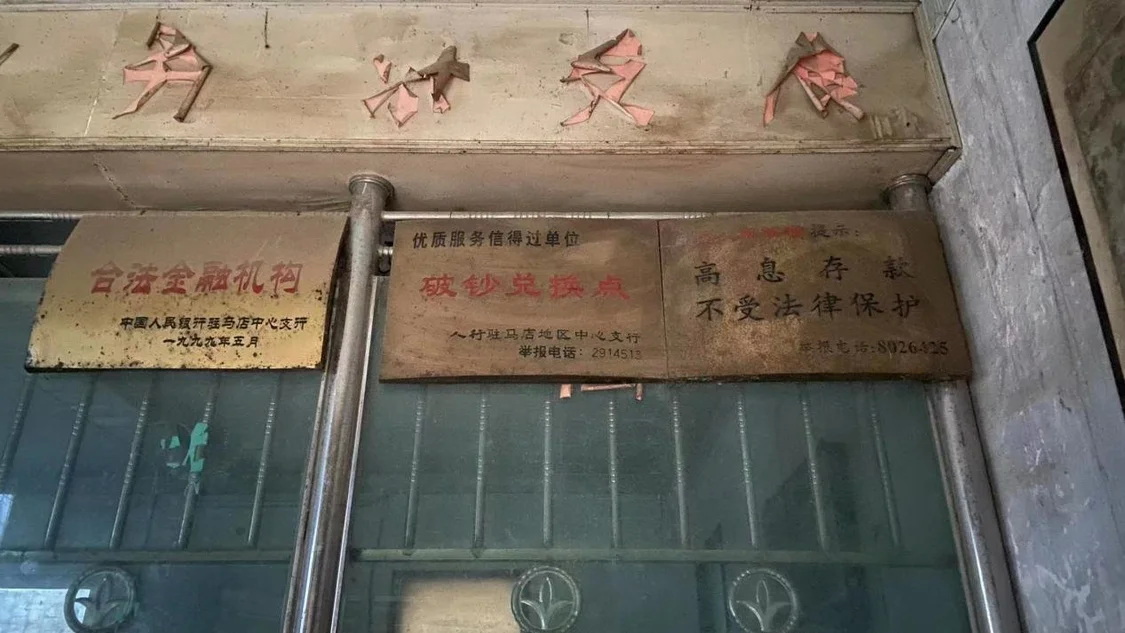 合法金融机构
中国人民银行驻马店中心支行
一九九九年五月
优质服务信得过单位
破钞兑换点
人行驻马店地区中心支行
举报电话：2914513
提示：
高息存款
不受法律保护
举报电话:8026425